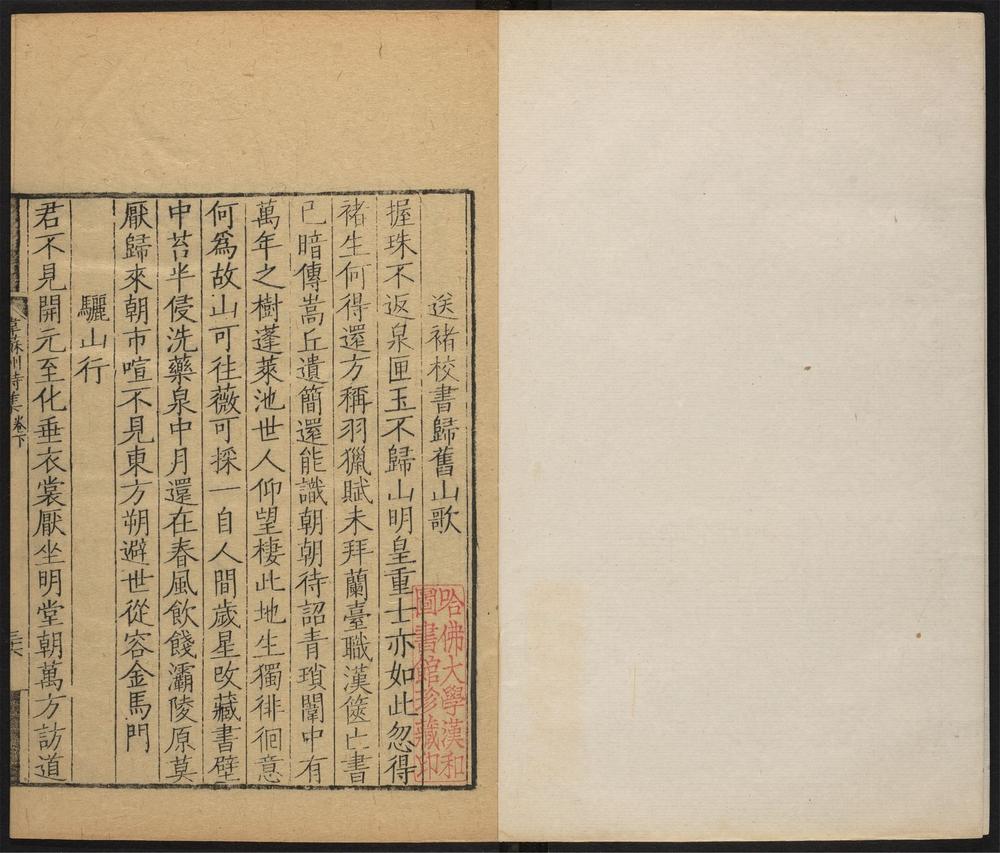 送褚校書歸舊山歌
握珠不返泉匣玉不歸山明皇重士亦如此忽得
褚生何得還方稱羽獵賦未拜蘭臺職漢篋亡書
已暗傳嵩丘遺簡還能識朝朝待詔青瑣闈中有
萬年之樹蓬萊池世人仰望棲此地生獨徘徊意
何爲故山可往薇可採一自人間歲星改藏書壁
中苔半侵洗藥泉中月還在春風飲餞灞陵原莫
厭歸來朝市喧不見東方朔避世從容金馬門
驪山行
君不見開元至化垂衣裳厭坐明堂朝萬方訪道
韋蘇州詩集
卷下
哈佛大學漢和
圖書館珍藏印